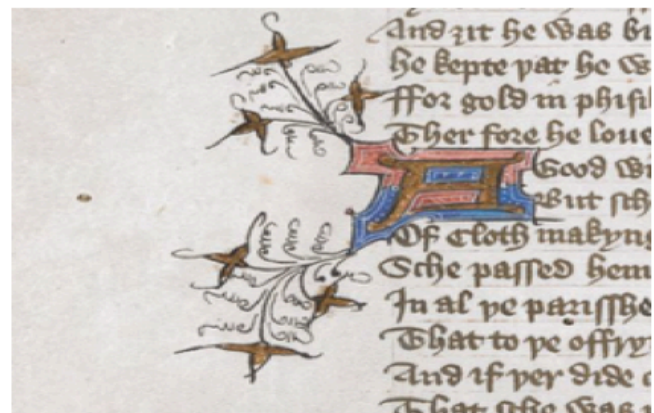 And ȝit he was
he kepte þat he
ffor gold in phisi
Ther fore he loue
A Good wi
But sch
Of Cloth makyn
Sche passed hem
In al þe parisshe
That to þe offry
And if þer dide
That sche was